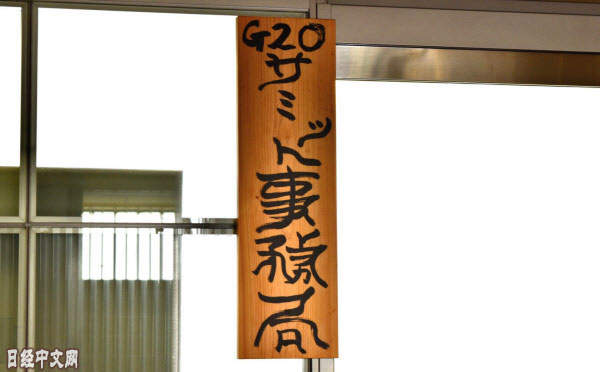 G20サミット事務局
日经中文网